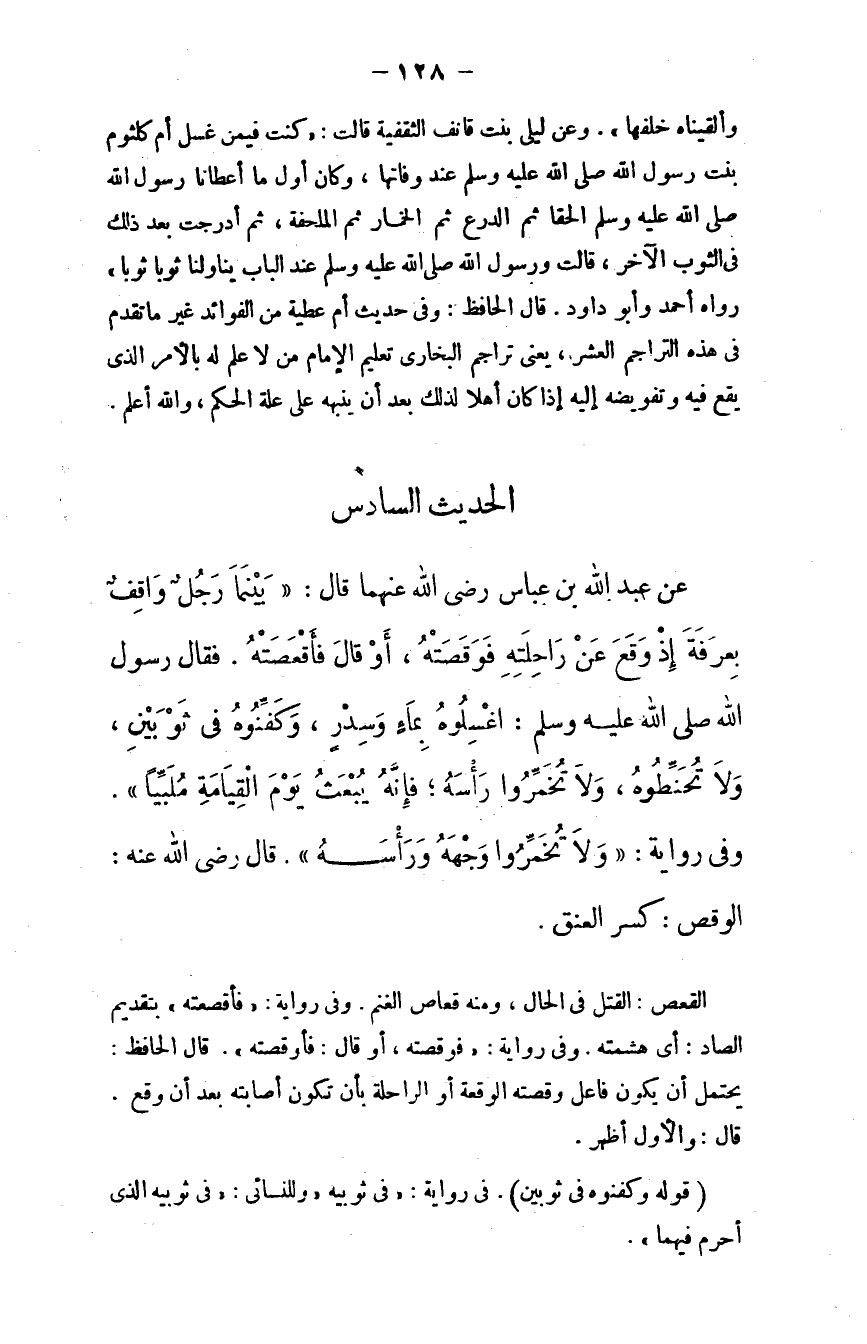 — ١٢٨ —
وألقيناه خلفها » . وعن ليلى بنت قانف الثقفية قالت : « كنت فيمن غسل أم كلثوم
بنت رسول الله صلى الله عليه وسلم عند وفاتها ، وكان أول ما أعطانا رسول الله
صلى الله عليه وسلم الحقا ثم الدرع ثم الخمار ثم الملحفة ، ثم أدرجت بعد ذلك
فى الثوب الآخر ، قالت ورسول الله صلى الله عليه وسلم عند الباب يناولنا ثوبا ثوبا »
رواه أحمد وأبو داود . قال الحافظ : وفى حديث أم عطية من الفوائد غير ما تقدم
فى هذه التراجم العشر ، يعنى تراجم البخارى تعليم الإمام من لا علم له بالأمر الذى
يقع فيه وتفويضه إليه إذا كان أهلا لذلك بعد أن ينبهه على علة الحكم ، والله أعلم .
الحديث السادس
عن عبد الله بن عباس رضى الله عنهما قال : « بَيْنَمَا رَجُلٌ وَاقِفٌ
بِعرَفَةَ إِذْ وَقَعَ عَنْ رَاحِلَتِهِ فَوَقَصَتْهُ ، أَوْ قالَ فَأَقْعَصَتْهُ . فقال رسول
الله صلى الله عليه وسلم : اغْسِلُوهُ بِمَاءٍ وَسِدْرٍ ، وَكَفِّنُوهُ فى ثَوْبَيْنِ ،
وَلاَ تُحَنِّطُوهُ ، وَلاَ تُخَمِّرُوا رَأْسَهُ ؛ فإِنَّهُ يُبْعَثُ يَوْمَ الْقِيَامَةِ مُلَبِّيًا » .
وفى رواية : « وَلاَ تُخَمِّرُوا وَجْهَهُ وَرَأْسَـــهُ » . قال رضى الله عنه :
الوقص : كسر العنق .
القعص : القتل فى الحال ، ومنه قعاص الغنم . وفى رواية : « فأقصعته » بتقديم
الصاد : أى هشمته . وفى رواية : « فوقصته ، أو قال : فأوقصته » . قال الحافظ :
يحتمل أن يكون فاعل وقصته الوقعة أو الراحلة بأن تكون أصابته بعد أن وقع .
قال : والأول أظهر .
( قوله وكفنوه فى ثوبين ) . فى رواية : « فى ثوبيه » وللنسائى : « فى ثوبيه الذى
أحرم فيهما » .